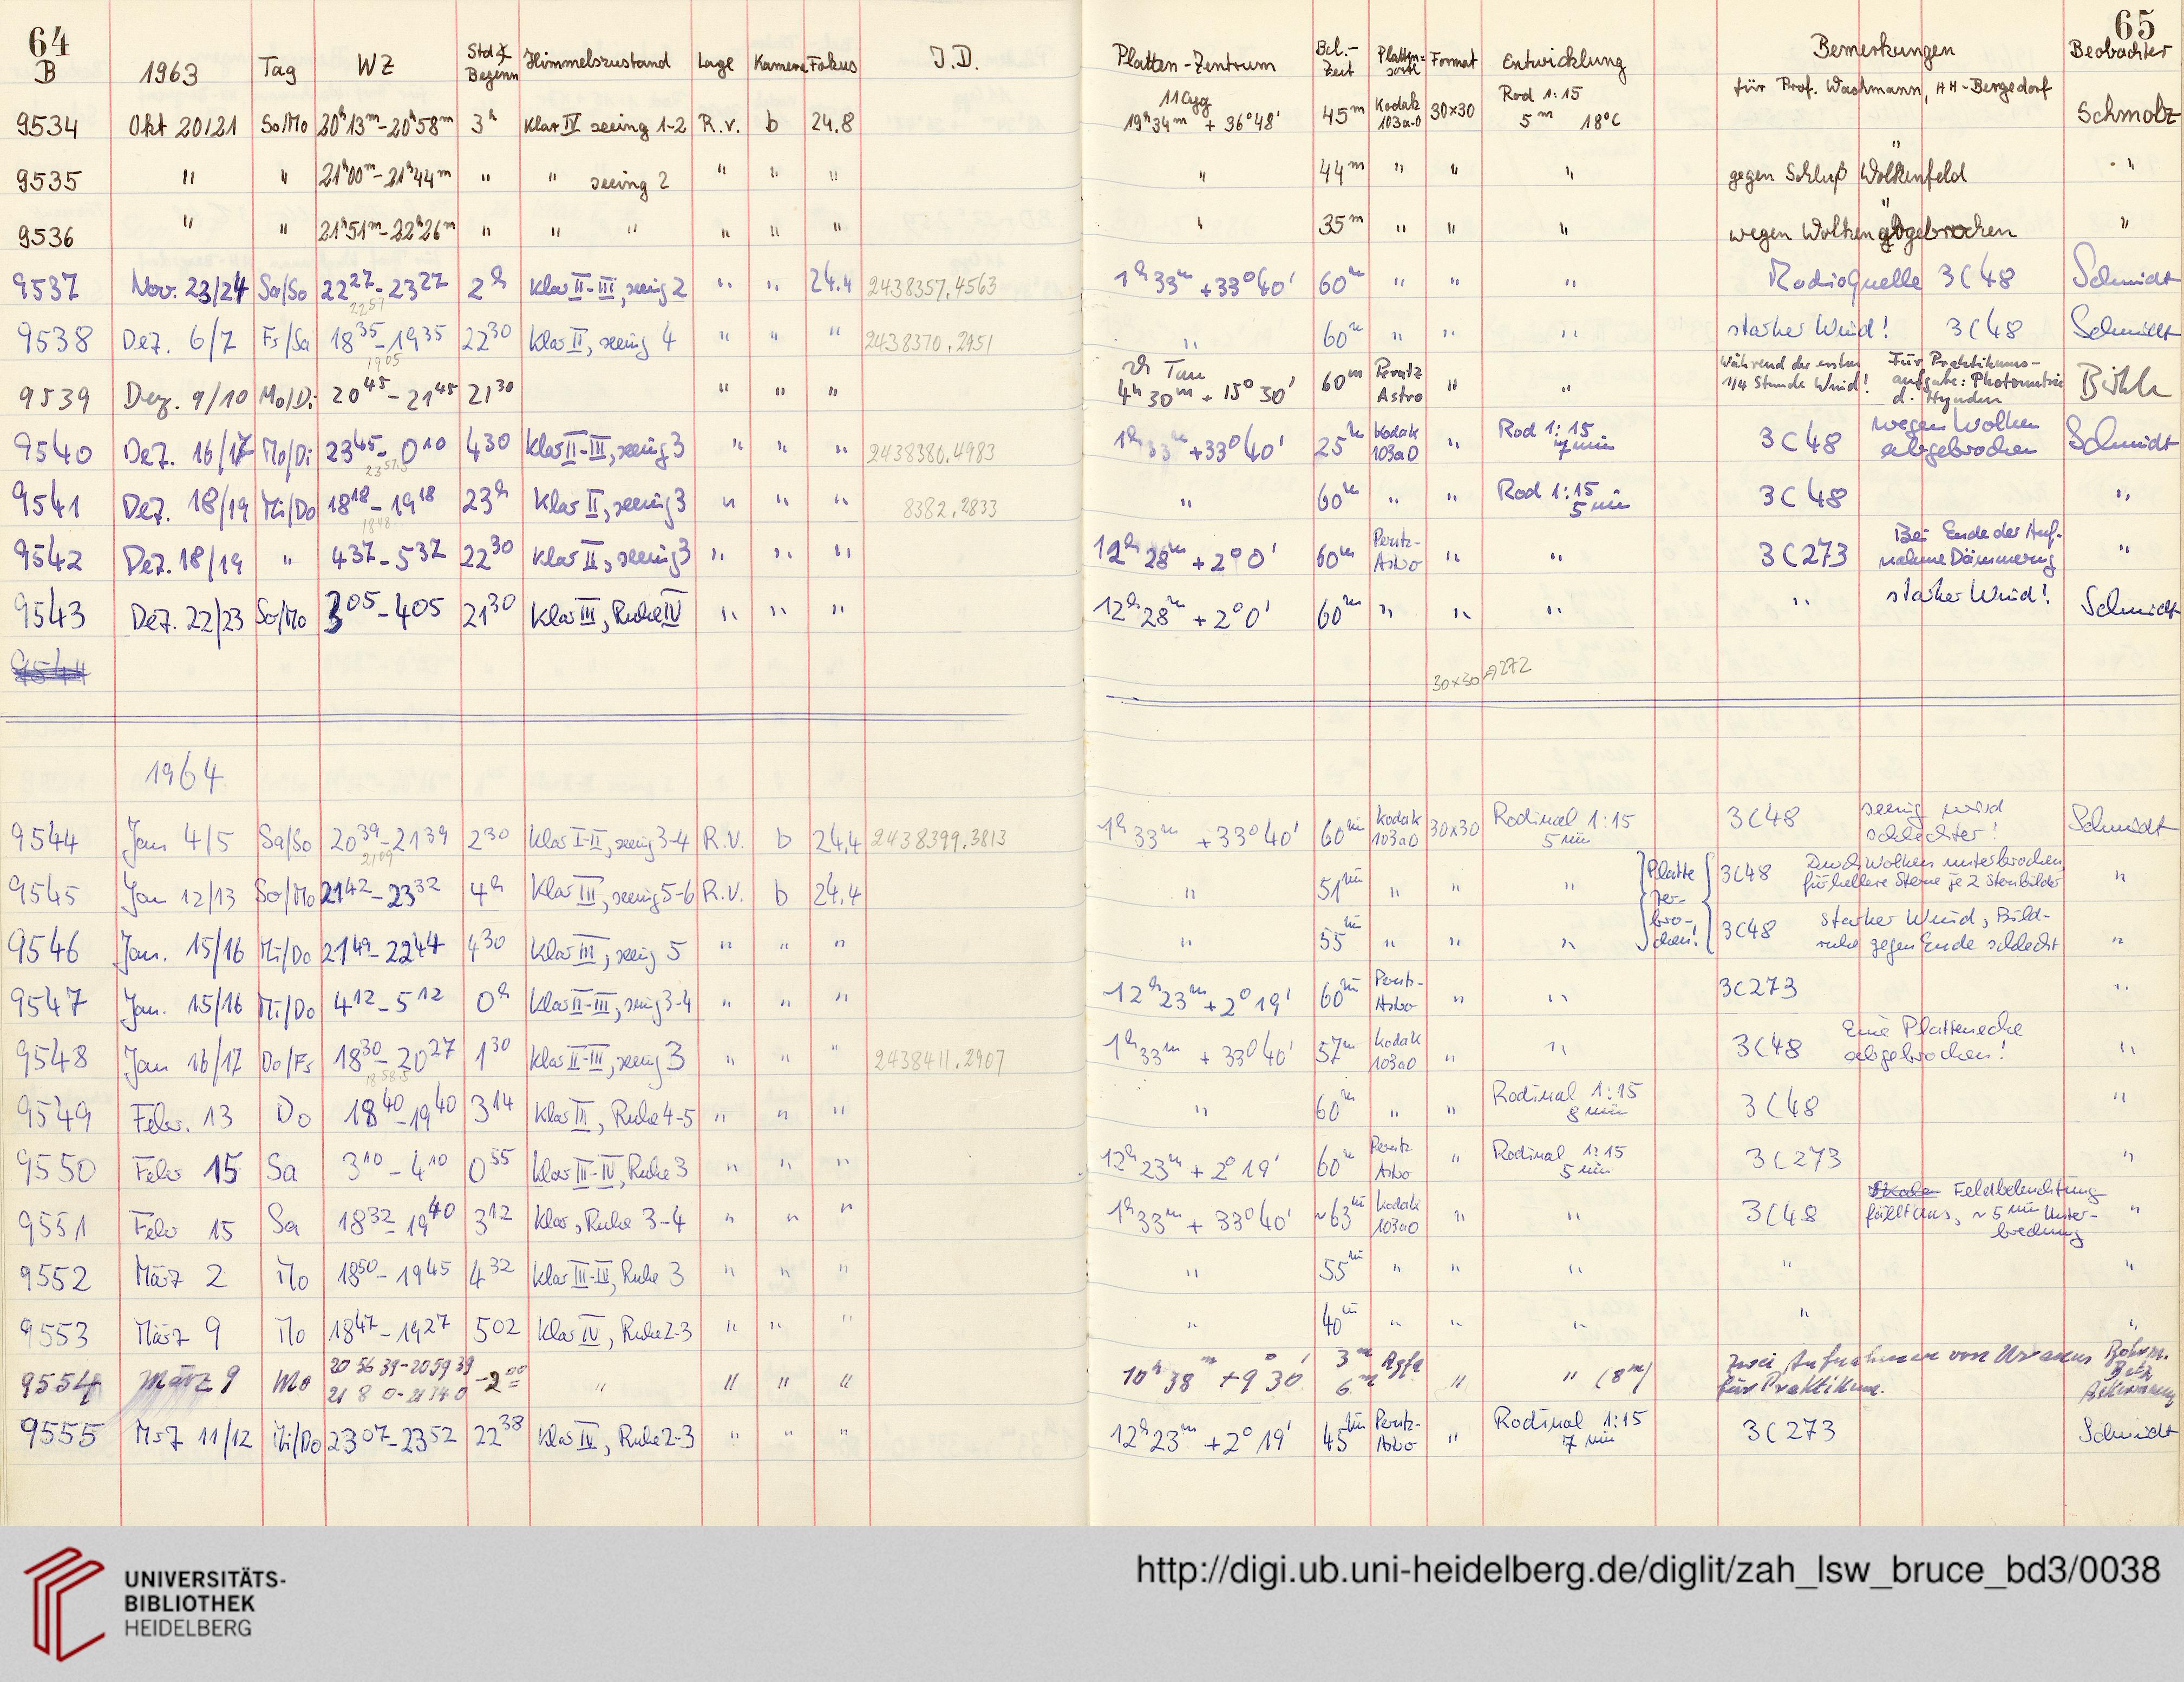 64 65
B 1963 Tag WZ Std∢ Beginn Himmelszustand Lage Kamera Fokus J.D. Platten-Zentrum Bel.-Zeit Platten=sorte Format Entwicklung Bemerkungen Beobachter
9534 Okt 20/21 So/Mo 20h13m-20h58m 3h klar IV seeing 1-2 R.v. b 24.8 11 Cyg 19h34m + 36°48' 45m Kodak 103a-O 30×30 Rod 1:15 5m 18°C für Prof. Wachmann, HH-Bergedorf Schmolz
9535 " " 21h00m-21h44m " " seeing 2 " " " " 44m " " " gegen Schluß Wolkenfeld "
9536 " " 21h51m-22h26m " " " " " " " 35m " " " wegen Wolken abgebrochen "
9537 Nov. 23/24 Sa/So 22 27-23 27 2h klar II-III, seeing 2 " " 24.4 2438357.4563 1h33m +33°40' 60m " " " Radioquelle 3C48 Schmidt
2257
9538 Dez. 6/7 Fr/Sa 18 35-19 35 22 30 klar II, seeing 4 " " " 2438370.2951 " 60m " " " starker Wind! 3C48 Schmidt
1905
9539 Dez. 9/10 Mo/Di 20 45-21 45 21 30 " " " Tau 4h30m + 15°30' 60m Perutz Astro " " Während der ersten 1/4 Stunde Wind! Für Praktikums-aufgabe: Photometrie d. Hyaden
9540 Dez. 16/17 Mo/Di 23 45-0 10 4 30 klar II-III, seeing 3 " " " 2438380.4983 1h33m +33°40' 25m Kodak 103aO " Rod 1:15 7 min 3C48 wegen Wolken abgebrochen Schmidt
2357.5
9541 Dez. 18/19 Mi/Do 18 18-19 18 23h klar II, seeing 3 " " " 8382.2833 " 60m " " Rod 1:15 5 min 3C48 "
1848
9542 Dez. 18/19 " 4 37-5 37 22 30 klar II, seeing 3 " " " 12h28m +2°0' 60m Perutz-Astro " " 3C273 Bei Ende der Auf-nahme Dämmerung "
9543 Dez. 22/23 So/Mo 3 05-4 05 21 30 klar III, Ruhe IV " " " 12h28m +2°0' 60m " " " " starker Wind! Schmidt
9544
30×30 A272
1964
9544 Jan 4/5 Sa/So 20 39-21 39 2 30 klar I-II, seeing 3-4 R.V. b 24.4 2438399.3813 1h33m +33°40' 60m Kodak 103aO 30×30 Rodinal 1:15 5 min 3C48 seeing wird schlechter! Schmidt
2109
9545 Jan 12/13 So/Mo 21 42-23 32 4h klar III, seeing 5-6 R.V. b 24.4 " 51m " " " Platte zer-bro-chen! 3C48 Durch Wolken unterbrochen, für hellere Sterne je 2 Sternbilder "
9546 Jan. 15/16 Mi/Do 21 49-22 44 4 30 klar III, seeing 5 " " " " 55m " " " 3C48 starker Wind, Bild-ruhe gegen Ende schlecht "
9547 Jan. 15/16 Mi/Do 4 12-5 12 0h klar II-III, seeing 3-4 " " " 12h23m +2°19' 60m Perutz-Astro " " 3C273 "
9548 Jan 16/17 Do/Fr 18 30-20 27 1 30 klar II-III, seeing 3 " " " 2438411.2907 1h33m +33°40' 57m Kodak 103aO " " 3C48 Eine Plattenecke abgebrochen! "
1858.5
9549 Febr. 13 Do 18 40-19 40 3 14 klar III, Ruhe 4-5 " " " " 60m " " Rodinal 1:15 8 min 3C48 "
9550 Febr 15 Sa 3 10-4 10 0 55 klar III-IV, Ruhe 3 " " " 12h23m +2°19' 60m Perutz Astro " Rodinal 1:15 5 min 3C273 "
9551 Febr 15 Sa 18 32-19 40 3 12 klar, Ruhe 3-4 " " " 1h33m +33°40' ~63m Kodak 103aO " " 3C48 Skala Feldbeleuchtung fällt aus, ~5 min Unter-brechung "
9552 März 2 Mo 18 50-19 45 4 32 klar III-IV, Ruhe 3 " " " " 55m " " " " "
9553 März 9 Mo 18 47-19 27 5 02 klar IV, Ruhe 2-3 " " " " 40m " " " " "
9554 März 9 Mo 20 56 39-20 59 39 21 8 0-21 14 0 -2 00 " " " " 10h38m +9°30' 3m 6m Agfa " " (8m) Zwei Aufnahmen von Uranus für Praktikum.
9555 Mrz 11/12 Mi/Do 23 07-23 52 22 38 klar IV, Ruhe 2-3 " " " 12h23m +2°19' 45m Perutz-Astro " Rodinal 1:15 7 min 3C273 Schmidt
UNIVERSITÄTS-
BIBLIOTHEK
HEIDELBERG
http://digi.ub.uni-heidelberg.de/diglit/zah_lsw_bruce_bd3/0038